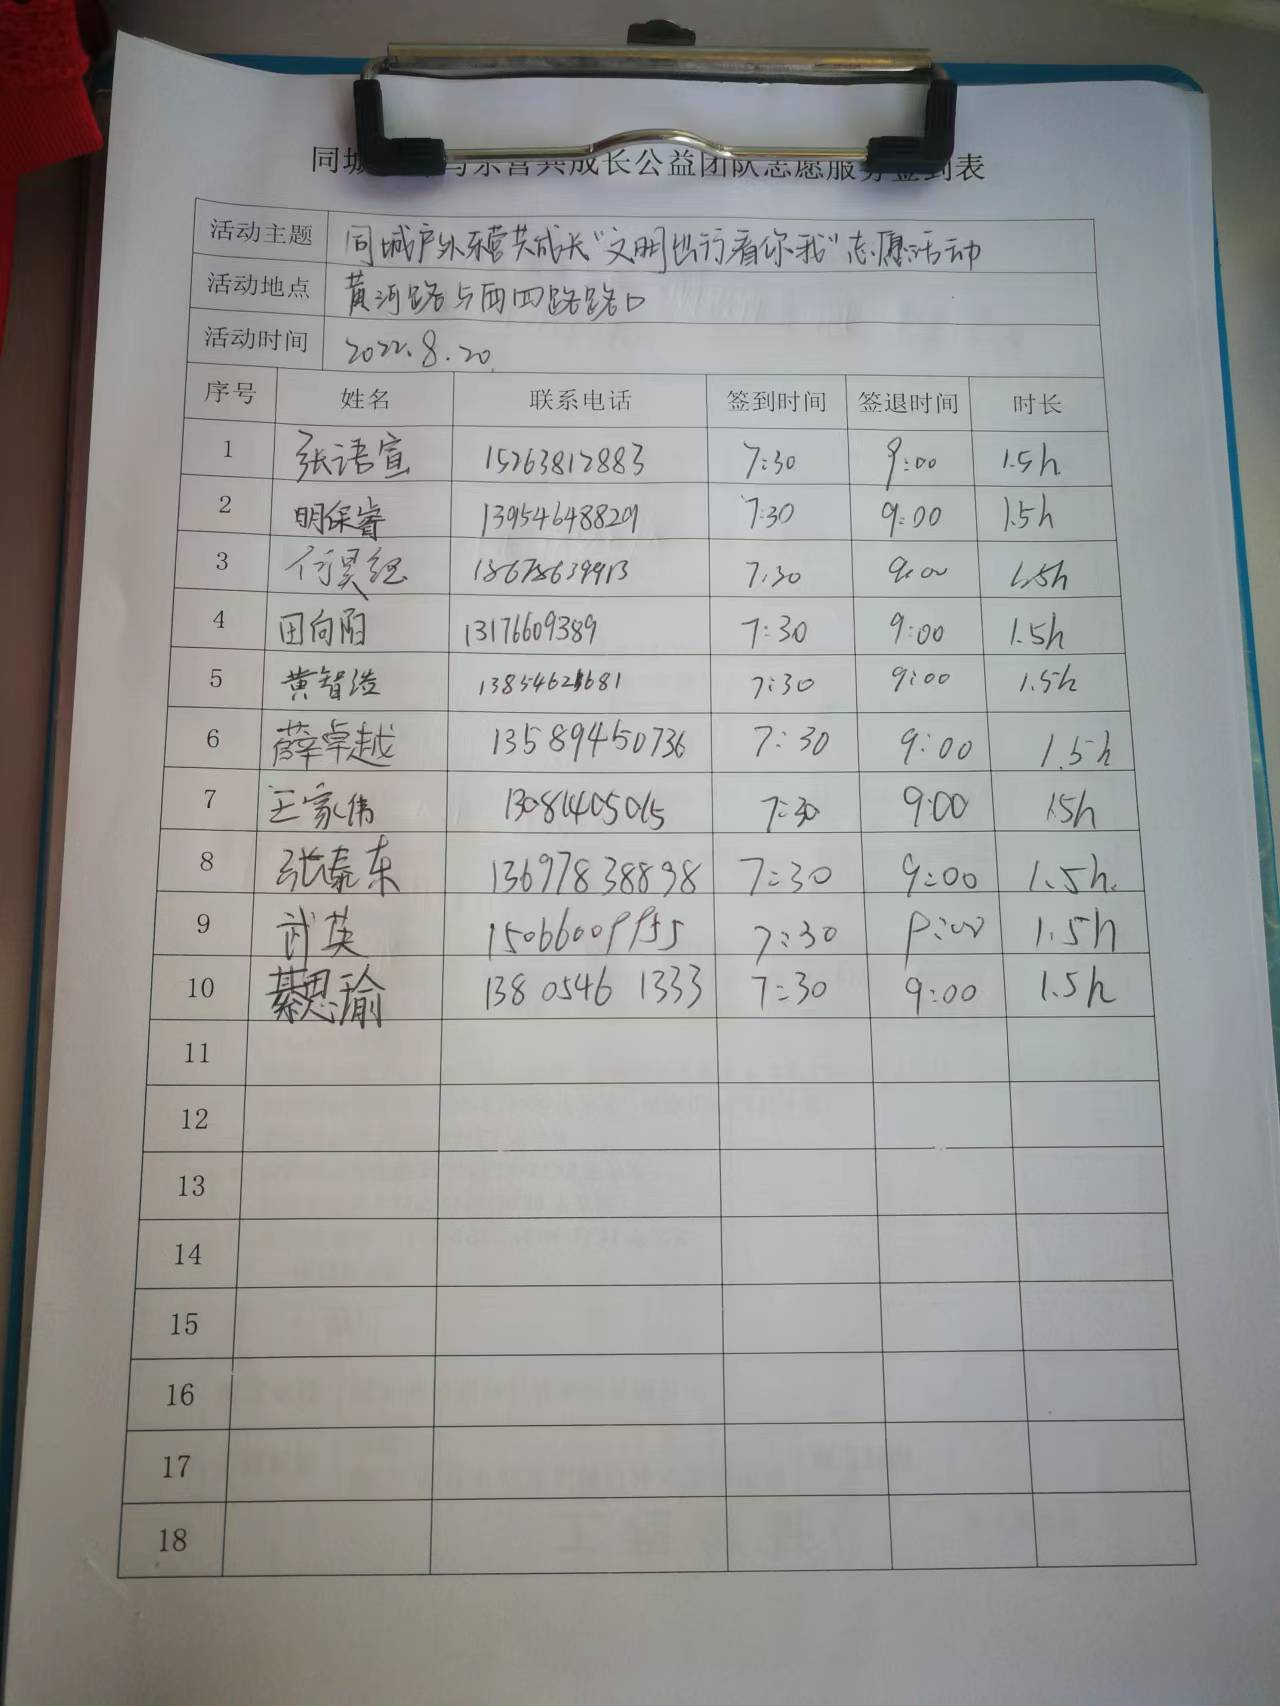 同城 与东营共成长公益团队志愿服务签到表
活动主题 同城户外东营共成长“文明出行看你我”志愿活动
活动地点 黄河路与西四路路口
活动时间 2022.8.20
序号 姓名 联系电话 签到时间 签退时间 时长
1 张语宣 15263812883 7:30 9:00 1.5h
2 明保睿 13954648829 7:30 9:00 1.5h
3 18678639913 7:30 9:00 1.5h
4 田向阳 13176609389 7:30 9:00 1.5h
5 黄智浩 7:30 9:00 1.5h
6 薛卓越 13589450736 7:30 9:00 1.5h
7 王家伟 13081405015 7:30 9:00 1.5h
8 张泰东 13697838898 7:30 9:00 1.5h.
9 武英 15066009955 7:30 9:00 1.5h
10 綦思瑜 1380546 1333 7:30 9:00 1.5h
11
12
13
14
15
16
17
18